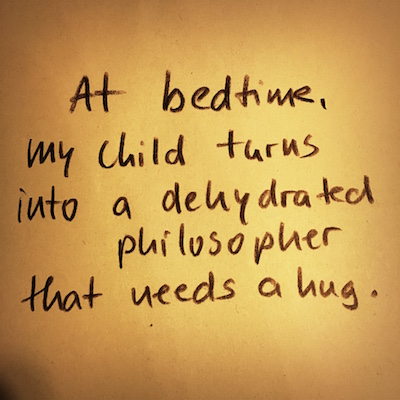 At bedtime,
my child turns
into a dehydrated
philosopher
that needs a hug.